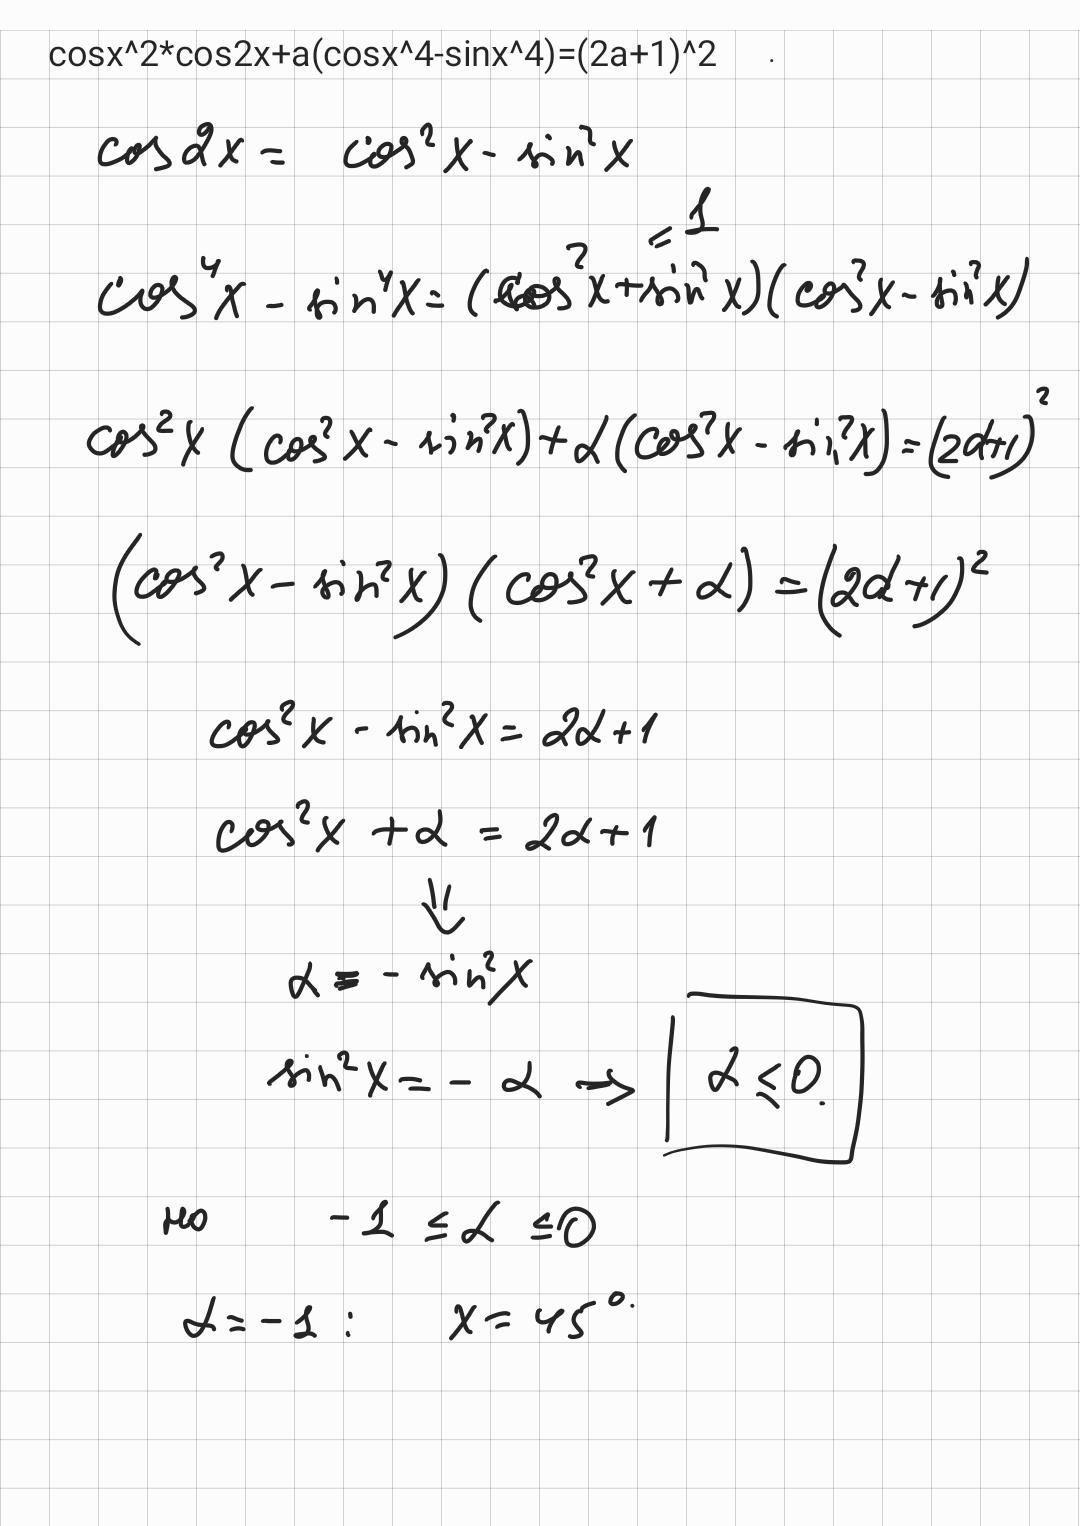 cosx^2*cos2x+a(cosx^4-sinx^4)=(2a+1)^2 .
cos2x = cos²x - sin²x
= 1
cos⁴x - sin⁴x = (cos²x + sin²x)(cos²x - sin²x)
cos²x (cos²x - sin²x) + α(cos²x - sin²x) = (2α+1)²
(cos²x - sin²x)(cos²x + α) = (2α+1)²
cos²x - sin²x = 2α+1
cos²x + α = 2α+1
⇓
α = - sin²x
sin²x = - α → α ≤ 0.
но -1 ≤ α ≤ 0
α = -1 : x = 45°.